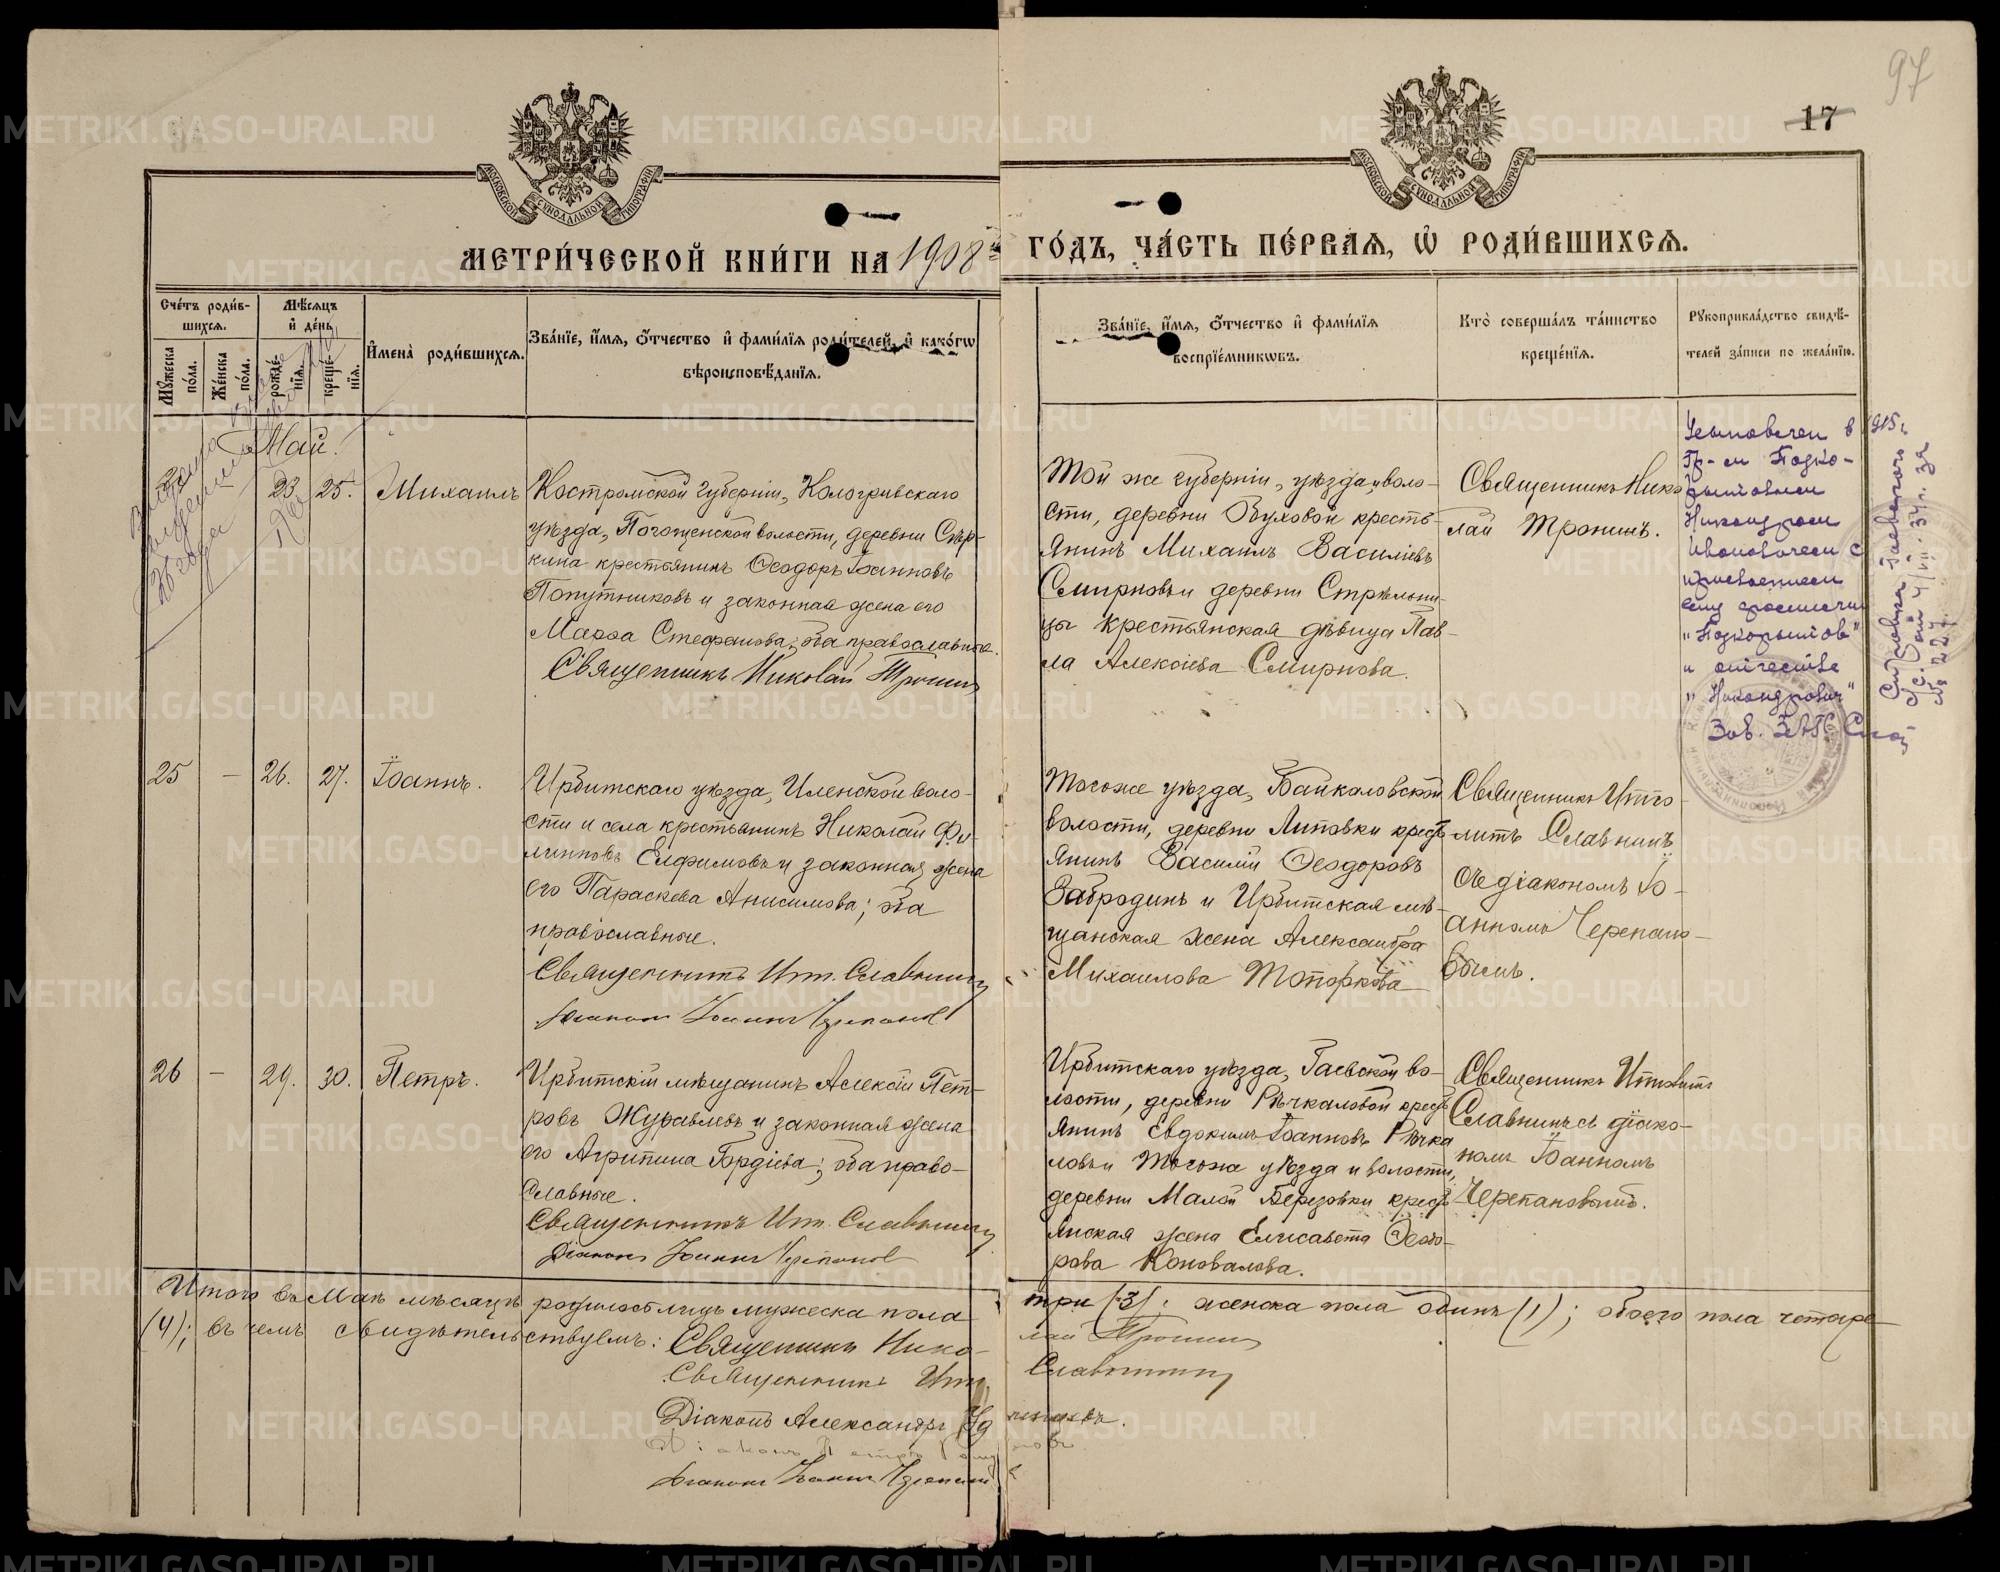 97
17
МОСКОВСКОЙ СѴНОДАЛЬНОЙ ТИПОГРАФІИ
МОСКОВСКОЙ СѴНОДАЛЬНОЙ ТИПОГРАФІИ
МЕТРИ́ЧЕСКОЙ КНИ́ГИ НА 1908й ГО́ДЪ, ЧА́СТЬ ПЕ́РВАѦ, Ѡ҆ РОДИ́ВШИХСѦ.
Сче́тъ роди́в-
шихсѧ.
Мꙋ́жеска по́ла.
Же́нска по́ла.
Мѣ́сѧцъ
и҆ де́нь
рожде́-
нїѧ.
креще́-
нїѧ.
И҆мена̀ роди́вшихсѧ.
Зва́нїе, и҆́мѧ, ѻ҆́тчество и҆ фами́лїѧ роди́телей, и҆ како́гѡ
вѣроисповѣ́данїѧ.
Зва́нїе, и҆́мѧ, ѻ҆́тчество и҆ фами́лїѧ
воспрїе́мникѡвъ.
Кто̀ соверша́лъ та́инство
креще́нїѧ.
Рꙋкоприкла́дство свидѣ́-
телей за́писи по жела́нїю.
Май.
23 25. Михаилъ
Костромской губерніи, Кологривскаго
уѣзда, Погощенской волости, деревни Сыр-
кина крестьянинъ Ѳеодоръ Іоанновъ
Попутниковъ и законная жена его
Марѳа Стефанова; оба православные.
Священникъ Николай Трошинъ
Той же губерніи, уѣзда, воло-
сти, деревни Обуховой кресть-
янинъ Михаилъ Василіевъ
Смирновъ и деревни Стрѣльни-
цы крестьянская дѣвица Пав-
ла Алексіева Смирнова.
Священникъ Нико
лай Трошинъ.
Усыновлен в 1915 г.
Гр-м Подко-
рытовым
Никандром
Ивановичем с
присвоением
ему фамилии
"Подкорытов"
и отчества
"Никандрович"
Зав. ЗАГС
25 – 26. 27. Іоаннъ.
Ирбитскаго уѣзда, Иленской воло-
сти и села крестьянинъ Николай Фи-
липповъ Елфимовъ и законная жена
его Параскева Анисимова; оба
православные.
Священникъ Ип. Славнинъ
Діаконъ Іоаннъ Черепановъ
Тогоже уѣзда, Байкаловской
волости, деревни Липовки крест
янинъ Василій Ѳеодоровъ
Забродинъ и Ирбитская мѣ-
щанская жена Александра
Михаилова Топоркова
Священникъ Иппо-
литъ Славнинъ
съ діакономъ Іо-
анномъ Черепано-
вымъ.
26 – 29. 30. Петръ.
Ирбитскій мѣщанинъ Алексій Пет-
ровъ Журавлевъ и законная жена
его Агрипина Гордіева; оба право-
славные.
Священникъ Ип. Славнинъ
Діаконъ Іоаннъ Черепановъ
Ирбитскаго уѣзда, Гаевской во-
лости, деревни Рѣчкаловой крест
янинъ Евдокимъ Іоанновъ Рѣчка
ловъ и тогоже уѣзда и волости,
деревни Малой Березовки крест
янская жена Елисавета Ѳеодо-
рова Коновалова.
Священникъ Ипполитъ
Славнинъ съ діако-
номъ Іоанномъ
Черепановымъ.
Итого въ Маѣ мѣсяцѣ родилось лицъ мужеска пола три (3); женска пола одинъ (1); обоего пола четыре
(4); въ чемъ свидѣтельствуемъ: Священникъ Николай Трошинъ
Священникъ Ип. Славнинъ
Діаконъ Александръ
Діаконъ Петръ
Діаконъ Іоаннъ Черепановъ
METRIKI.GASO-URAL.RU